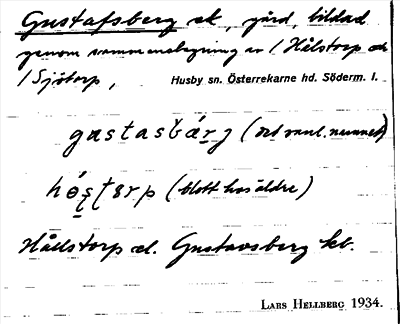 Gustafsberg ek, gård, bildad
genom sammanslagning av 1 Hålstorp och
1 Sjötorp,
Husby sn. Österrekarne hd. Söderm. l.
gastasbárg (det vanl. namnet)
hǿstərp (blott hos äldre)
Hållstorp el. Gustavsberg kb.
LARS HELLBERG 1934.